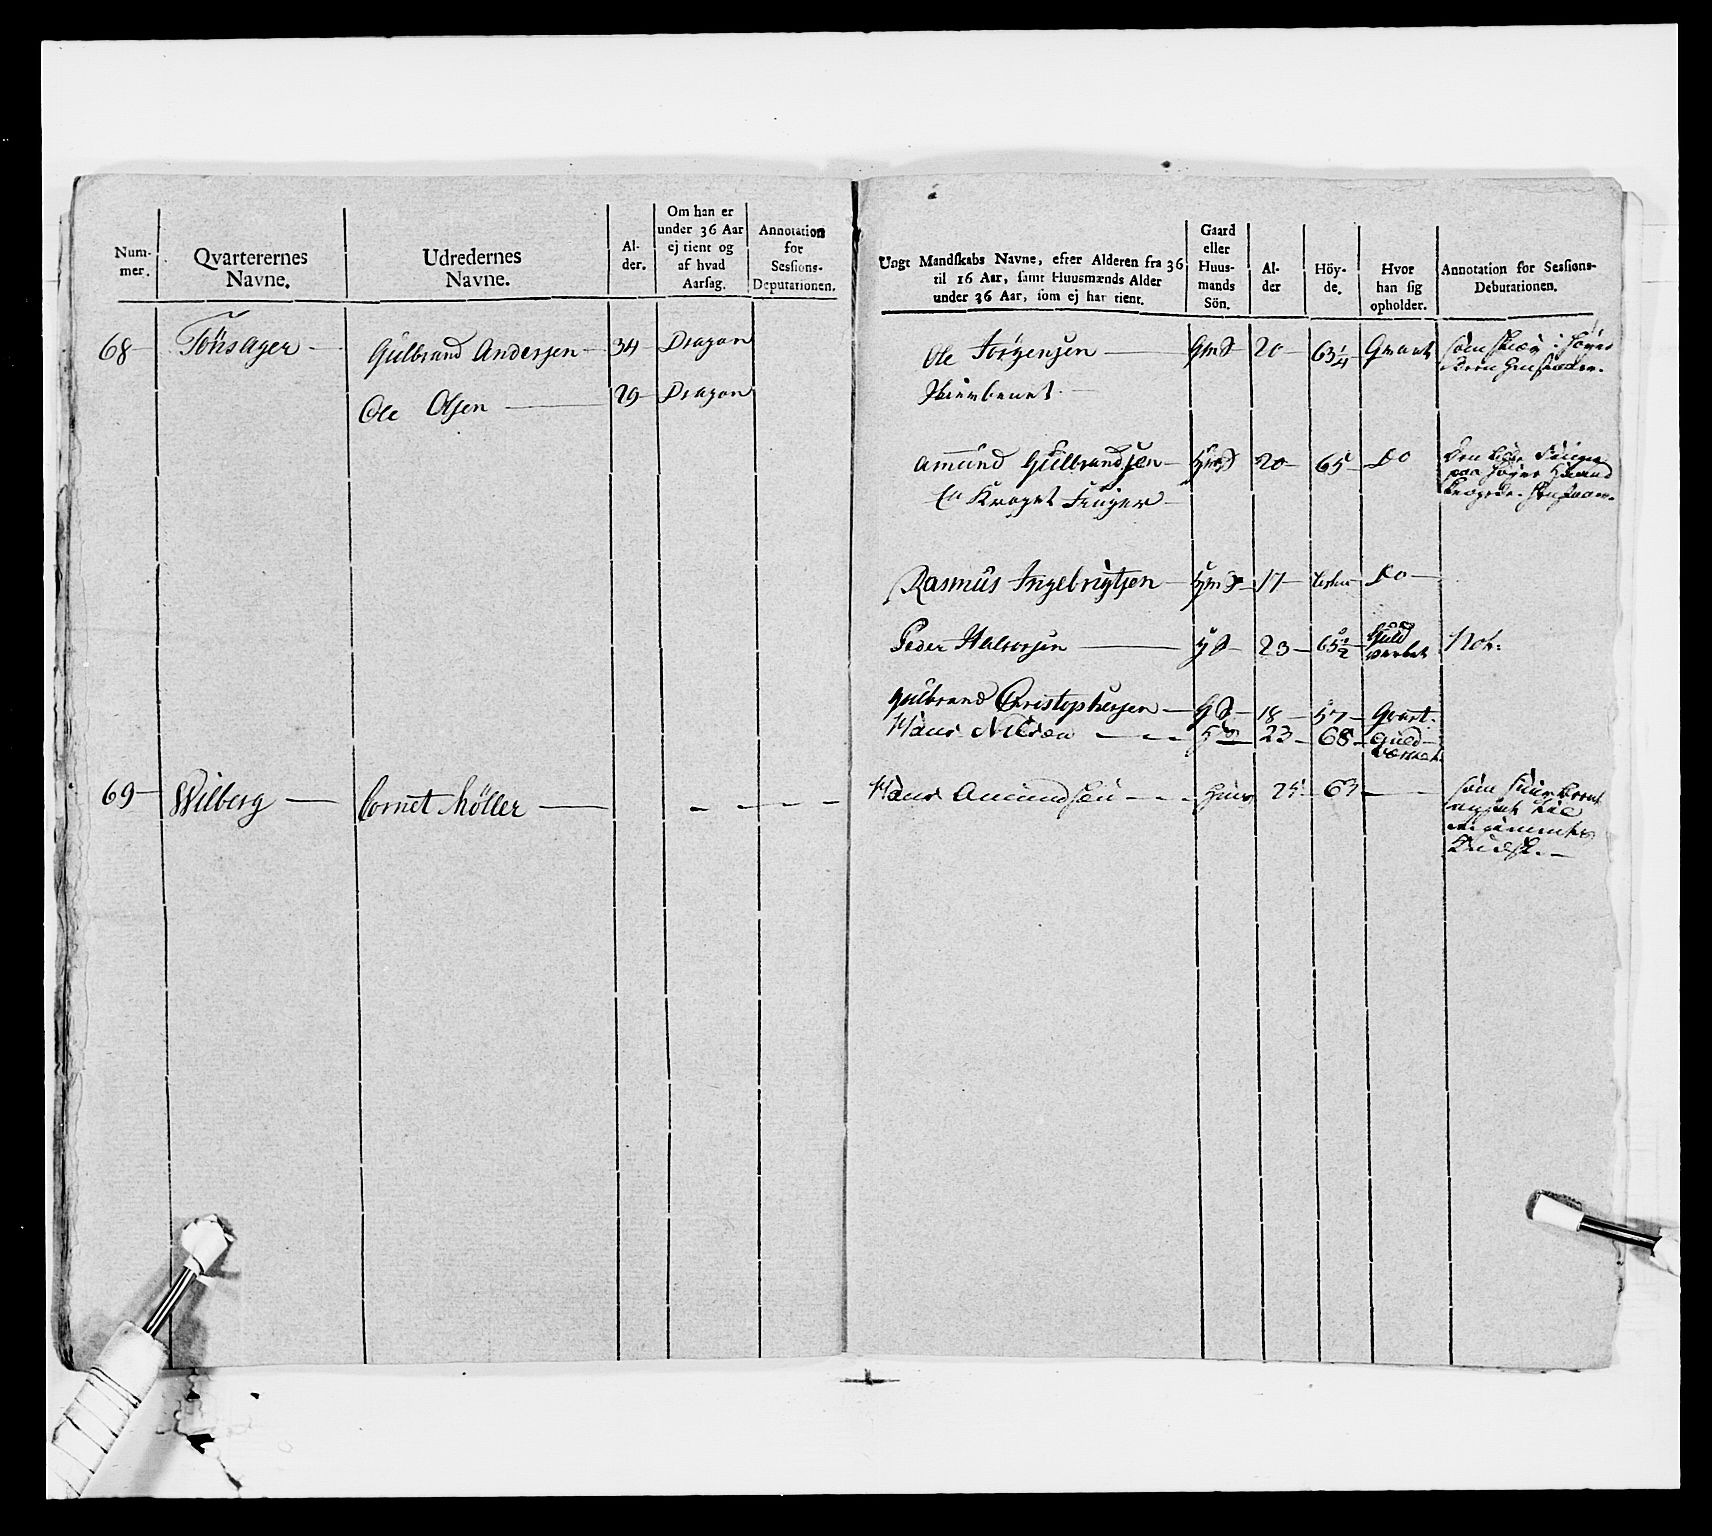 Num-
mer.
Qvarterernes
Navne.
Udredernes
Navne.
Al-
der.
Om han er
under 36 Aar
ej tient og
af hvad
Aarsag.
Annotation
for
Sessions-
Deputationen.
68 Tönsager Gulbrand Andersen 34 Dragon
Ole Olsen 29 Dragon
69 Wilberg Cornet Möller
Ungt Mandskabs Navne, efter Alderen fra 36
til 16 Aar, samt Huusmænds Alder
under 36 Aar, som ej har tient.
Gaard
eller
Huus-
mands
Sön.
Al-
der
Höy-
de.
Hvor
han sig
opholder.
Annotation for Sessions-
Debutationen.
Ole Jorgensen GmS 20 63 1/4 Qvart
Skierbenet
Amund Gulbrandsen HmS 20 65 Do
En Kroget Finger
Rasmus Ingebrigtsen HmS 17 Do
Peder Halvorsen 23 65 1/2 Guld
verket Not.
Gulbrand Christophersen GS 18 57 Qvart.
Hans Nilsen 23 68 Guld
værket
Hans Amundsen Huus 25 63